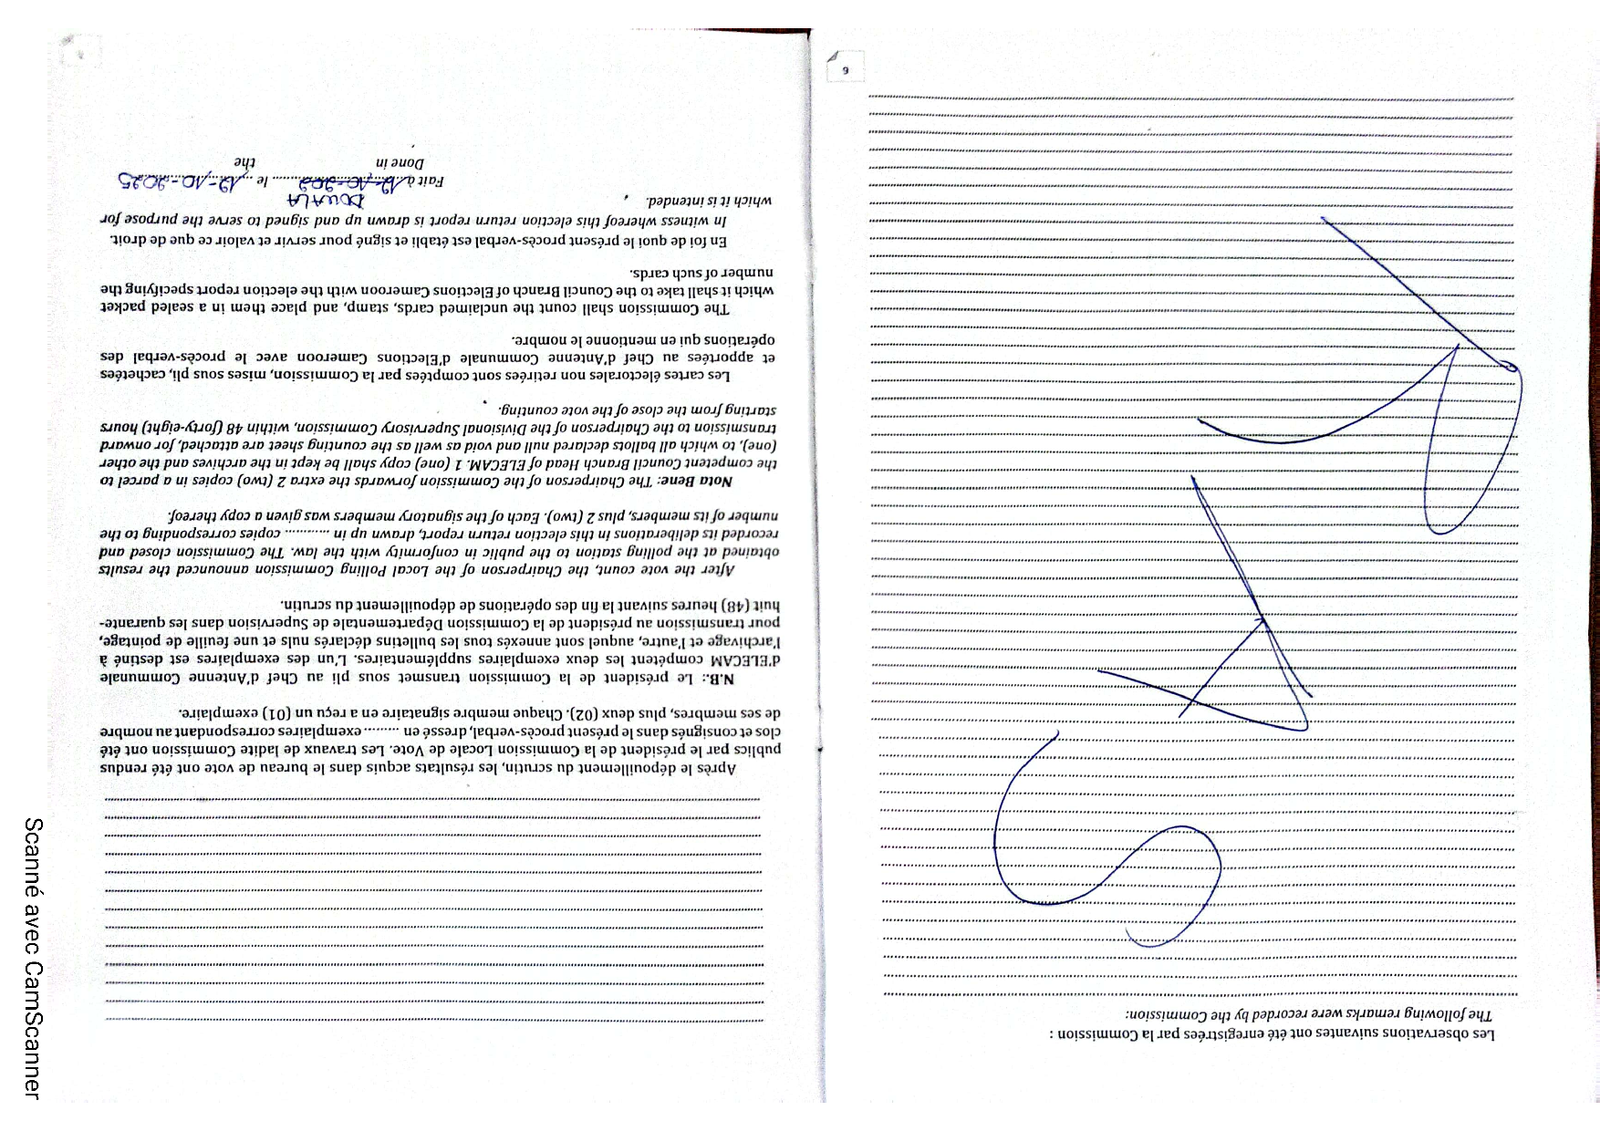 Les observations suivantes ont été enregistrées par la Commission :
The following remarks were recorded by the Commission:
RAS
9
Après le dépouillement du scrutin, les résultats acquis dans le bureau de vote ont été rendus
publics par le président de la Commission Locale de Vote. Les travaux de ladite Commission ont été
clos et consignés dans le présent procès-verbal, dressé en ......... exemplaires correspondant au nombre
de ses membres, plus deux (02). Chaque membre signataire en a reçu un (01) exemplaire.
N.B.: Le président de la Commission transmet sous pli au Chef d'Antenne Communale
d'ELECAM compétent les deux exemplaires supplémentaires. L'un des exemplaires est destiné à
l'archivage et l'autre, auquel sont annexés tous les bulletins déclarés nuls et une feuille de pointage,
pour transmission au président de la Commission Départementale de Supervision dans les quarante-
huit (48) heures suivant la fin des opérations de dépouillement du scrutin.
After the vote count, the Chairperson of the Local Polling Commission announced the results
obtained at the polling station to the public in conformity with the law. The Commission closed and
recorded its deliberations in this election return report, drawn up in ........... copies corresponding to the
number of its members, plus 2 (two). Each of the signatory members was given a copy thereof.
Nota Bene: The Chairperson of the Commission forwards the extra 2 (two) copies in a parcel to
the competent Council Branch Head of ELECAM. 1 (one) copy shall be kept in the archives and the other
(one), to which all ballots declared null and void as well as the counting sheet are attached, for onward
transmission to the Chairperson of the Divisional Supervisory Commission, within 48 (forty-eight) hours
starting from the close of the vote counting.
Les cartes électorales non retirées sont comptées par la Commission, mises sous pli, cachetées
et apportées au Chef d'Antenne Communale d'Elections Cameroon avec le procès-verbal des
opérations qui en mentionne le nombre.
The Commission shall count the unclaimed cards, stamp, and place them in a sealed packet
which it shall take to the Council Branch of Elections Cameroon with the election report specifying the
number of such cards.
En foi de quoi le présent procès-verbal est établi et signé pour servir et valoir ce que de droit.
In witness whereof this election return report is drawn up and signed to serve the purpose for
which it is intended.
DOUALA
Fait à 12-10-202 le 12-10-2025
Done in the
Scanné avec CamScanner